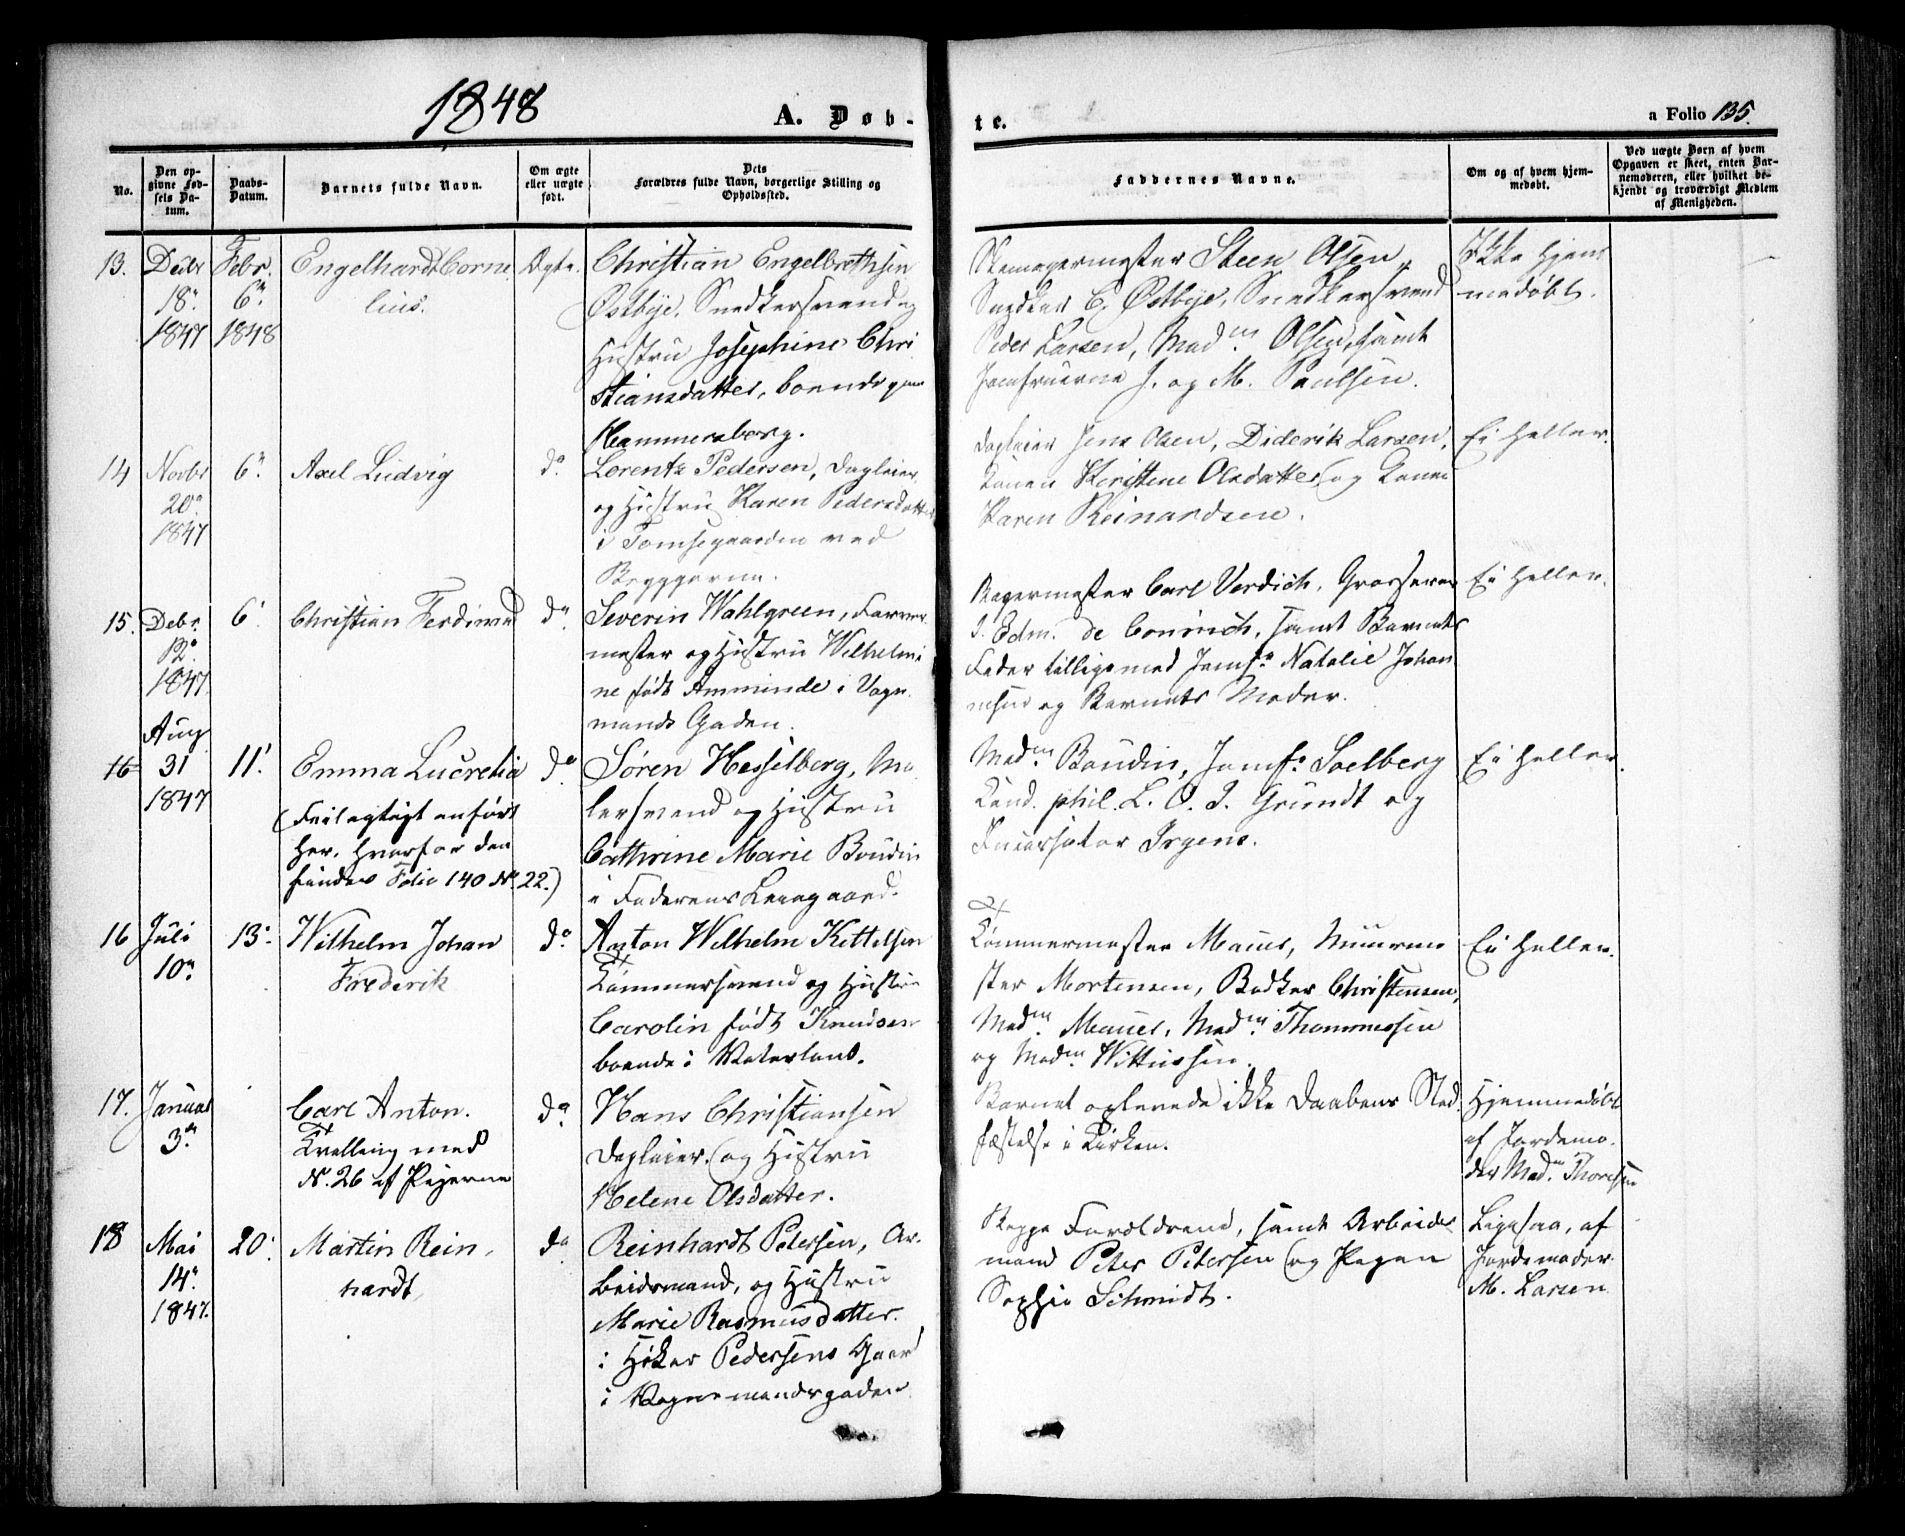 1848
A. Døb-
te.
a Folio 135.
No.
Den op-
givne Fød-
sels Da-
tum.
Daabs-
Datum.
Barnets fulde Navn.
Om ægte
eller uægte
født.
Dets
Forældres fulde Navn, borgerlige Stilling og
Opholdssted.
Faddernes Navne.
Om og af hvem hjem-
medøbt.
Ved uægte Børn af hvem
Opgaven er skeet, enten Bar-
nemoderen, eller hvilket be-
kjendt og troværdigt Medlem
af Menigheden.
13.
Decbr
18de
1847
Febr.
6te
1848
Engelhardt Corne
lius.
Ægte.
Christian Engelbrethsen
Østbye, Snedkersvend og
Hustru Josephine Chri
stiansdatter, boende paa
Hammersborg.
Skomagermester Steen Olsen,
Snedker C. Østbye, Snedkersvend
Peder Larsen, Madm. Olsen, samt
Jomfruerne J. og M. Paulsen.
Ikke hjem
medøbt.
14
Novbr
20de
1847
6te
Axel Ludvig
do
Lorentz Pedersen, Dagleier
og Hustru Karen Pedersdatter
i Tomtegaarden ved
Bryggerne.
Dagleier Jens Olsen, Diderik Larsen,
Konen Kirstene Olsdatter og Konen
Karen Reinardsen.
Ei heller.
15.
Debr.
12te
1847
6.
Christian Ferdinand
do
Severin Wahlgreen, Farver
mester og Hustru Wilhelmi
ne født Amminde i Vogn
mands Gaden.
Bagermester Carl Verdich, Grosserer
J. Edm. de Coninch, samt Barnets
Fader tilligemed Jomf. Natalie Johan
nesen og Barnets Moder.
Ei heller.
16
Aug
31
1847
11.
Emma Lucretia
(Feilagtigt anført
her, hvorfor den
findes Folio 140 No. 22.)
do
Søren Hesselberg, Ma
lersvend og Hustru
Cathrine Marie Boudin
i Faderens Leiegaard.
Madm. Boudin, Jomf. Solberg
Cand. phil. L. O. J. Grundt og
Inkasator Irgens.
Ei heller.
16
Juli
10de
13.
Wilhelm Johan
Frederik
do
Anton Wilhelm Kittelsen
Tømmersvend og Hustru
Carolin født Knudsen
boende i Vaterland.
Tømmermester Maues, Muurme
ster Mortensen, Bødker Christensen,
Madm. Maues, Madm. Thommesen
og Madm. Wittussen.
Ei heller.
17.
Januar
3de
Carl Anton.
Tvilling med
N. 26 af Pigerne
do
Hans Christiansen
Dagleier og Hustru
Helene Olsdatter.
Barnet oplevede ikke Daabens Stad
fæstelse i Kirken.
Hjemmedøbt
af Jordemo-
der Madm. Thoresen
18
Mai
14de
1847.
20.
Martin Rein
hardt
do
Reinhardt Petersen, Ar-
beidsmand, og Hustru
Marie Rasmusdatter.
i Høker Pedersens Gaard
i Vognmandsgaden
Begge Forældrene, samt Arbeids
mand Peter Petersen og Pigen
Sophie Schmidt.
Ligesaa, af
Jordemoder
M. Larsen